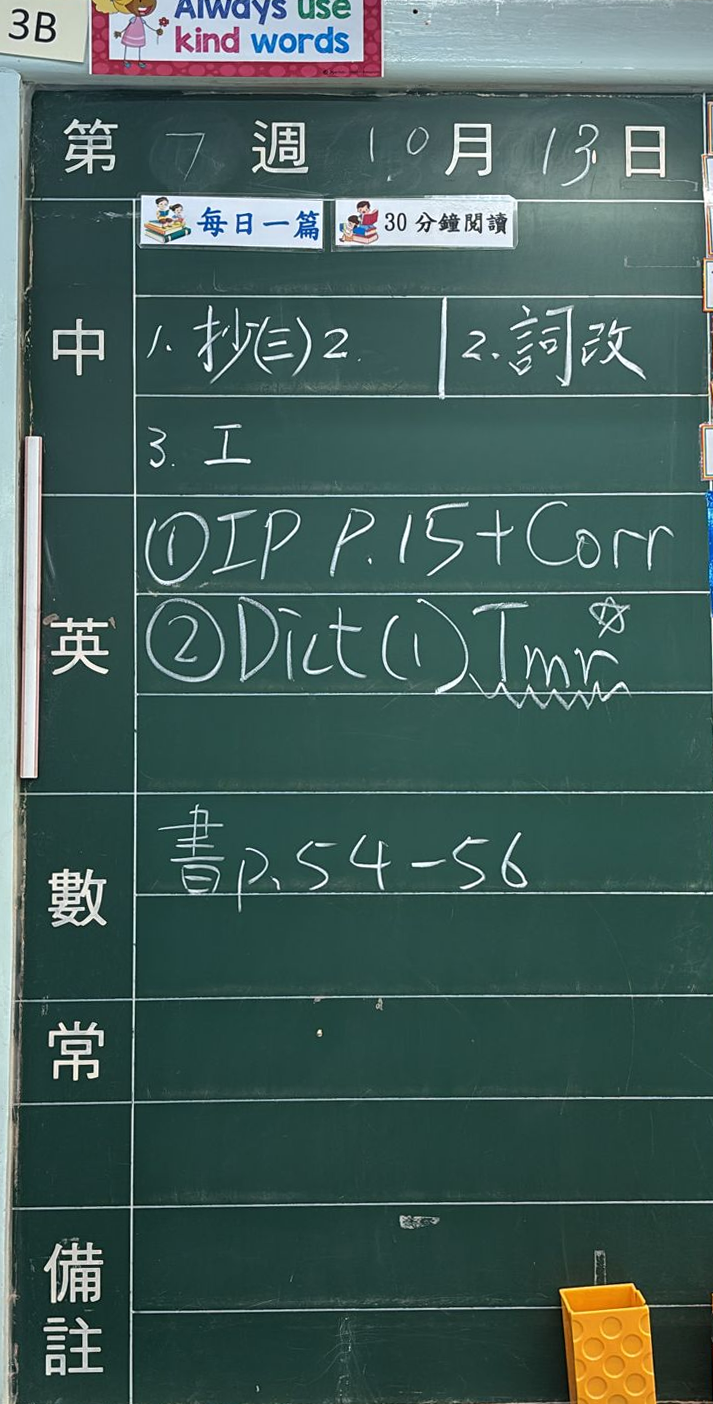 3B
Always use
kind words
第 7 週 10 月 13 日
每日一篇 30 分鐘閱讀
中 1. 抄(三)2. 2. 詞改
3. 工
英 ①IP P.15+Corr
②Dict(1) Tmr ☆
數 書p.54-56
常
備註